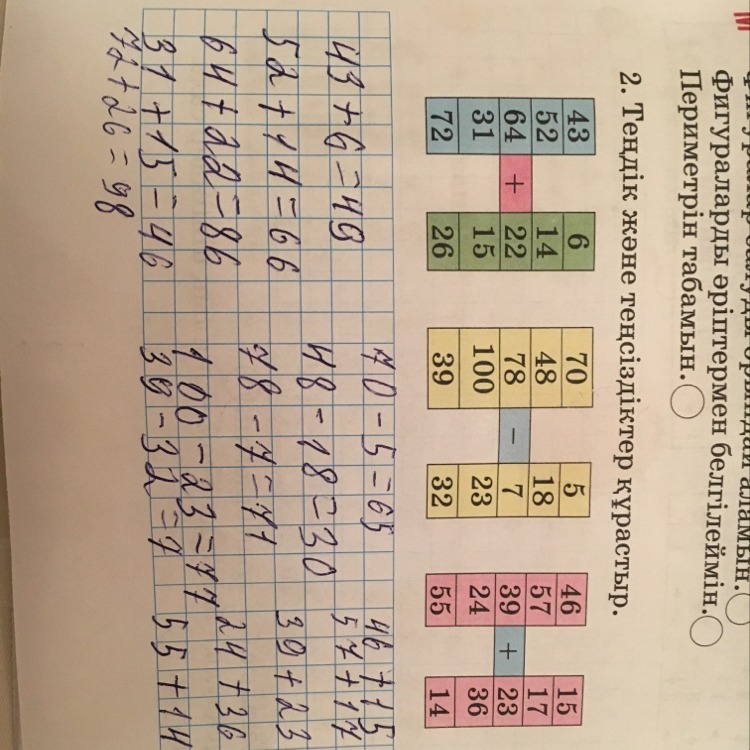 Фигураларды әріптермен белгілеймін.
Периметрін табамын.
2. Теңдік және теңсіздіктер құрастыр.
43 6 70 5 46 15
52 14 48 18 57 17
64 + 22 78 − 7 39 + 23
31 15 100 23 24 36
72 26 39 32 55 14
43 + 6 = 49 70 - 5 = 65 46 + 15
52 + 14 = 66 48 - 18 = 30 57 + 17
64 + 22 = 86 78 - 7 = 71 39 + 23
31 + 15 = 46 100 - 23 = 77 24 + 36
72 + 26 = 98 39 - 32 = 7 55 + 14